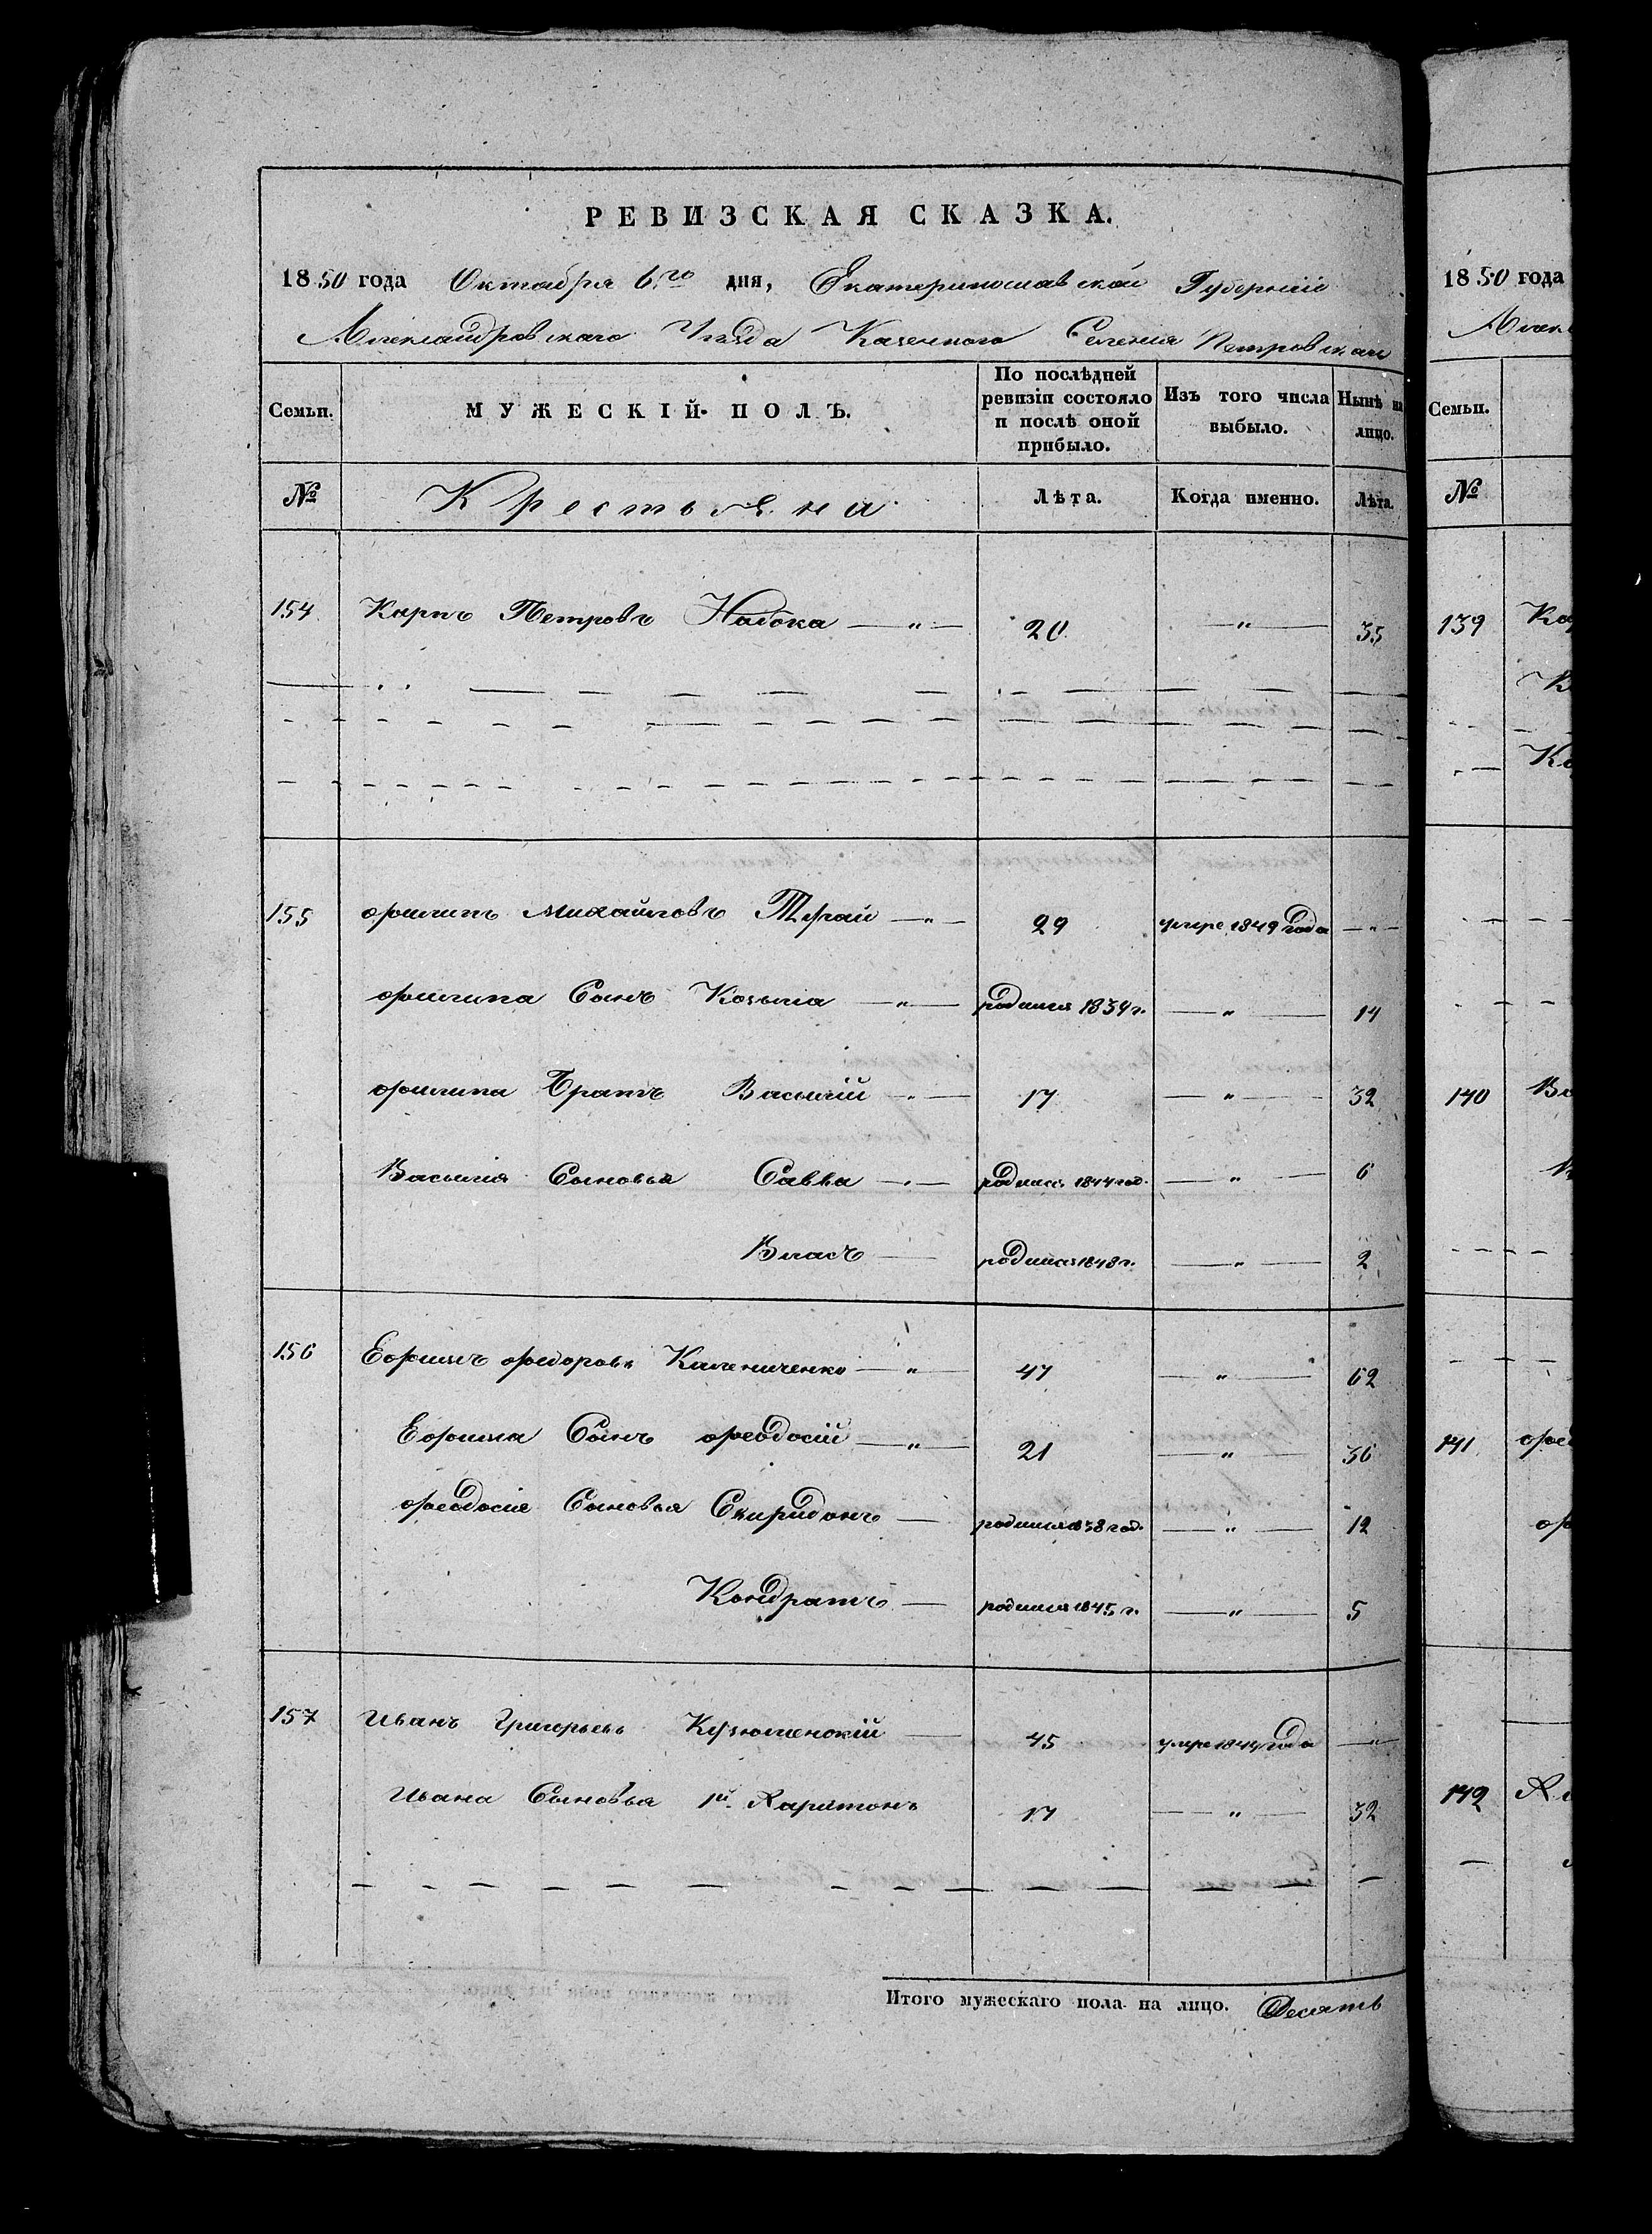 РЕВИЗСКАЯ СКАЗКА.
1850 года Октября 6.го дня, Екатеринославской Губерніи
Александровскаго Уѣзда Казеннаго Селенія Петровскаго
Семьи. МУЖЕСКІЙ ПОЛЪ. По послѣдней ревизіи состояло и послѣ оной прибыло. Изъ того числа выбыло. Нынѣ на лицо.
№ Крестьяне Лѣта. Когда именно. Лѣта.
154 Карпъ Петровъ Набока — „ — 20 — „ — 35
155 Филипъ Михайловъ — „ — 29 умре 1849 года — „ —
Филипа Сынъ Козьма — „ — родился 183 г. — „ — 14
Филипа Братъ Василій — „ — 17 — „ — 32
Василія Сыновья Савва — „ — родился 1844 год. — „ — 6
Власъ — родился 1848 г. — „ — 2
156 Ефимъ Федоровъ Калениченко — „ — 47 — „ — 62
Ефима Сынъ Феодосій — „ — 21 — „ — 36
Феодосія Сыновья Спиридонъ — родился 838 год. — „ — 12
Кондратъ — родился 1845 г. — „ — 5
157 Иванъ Григорьевъ — 45 умре 1844 года — „ —
Ивана Сыновья 1й. Харитонъ 17 — „ — 32
Итого мужескаго пола на лицо. Десять
1850 года
Семьи.
№
139
140
141
142